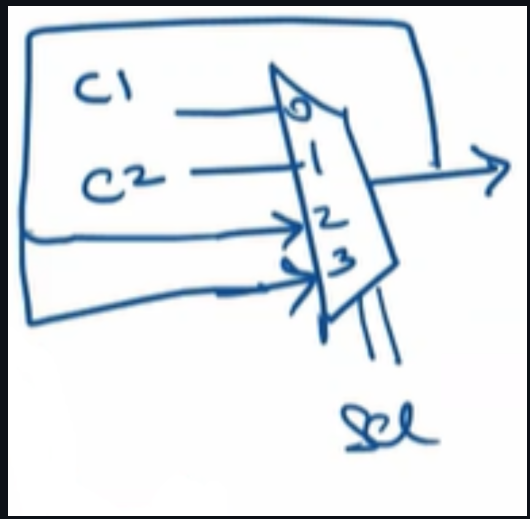 C1
0
C2
1
2
3
Sel